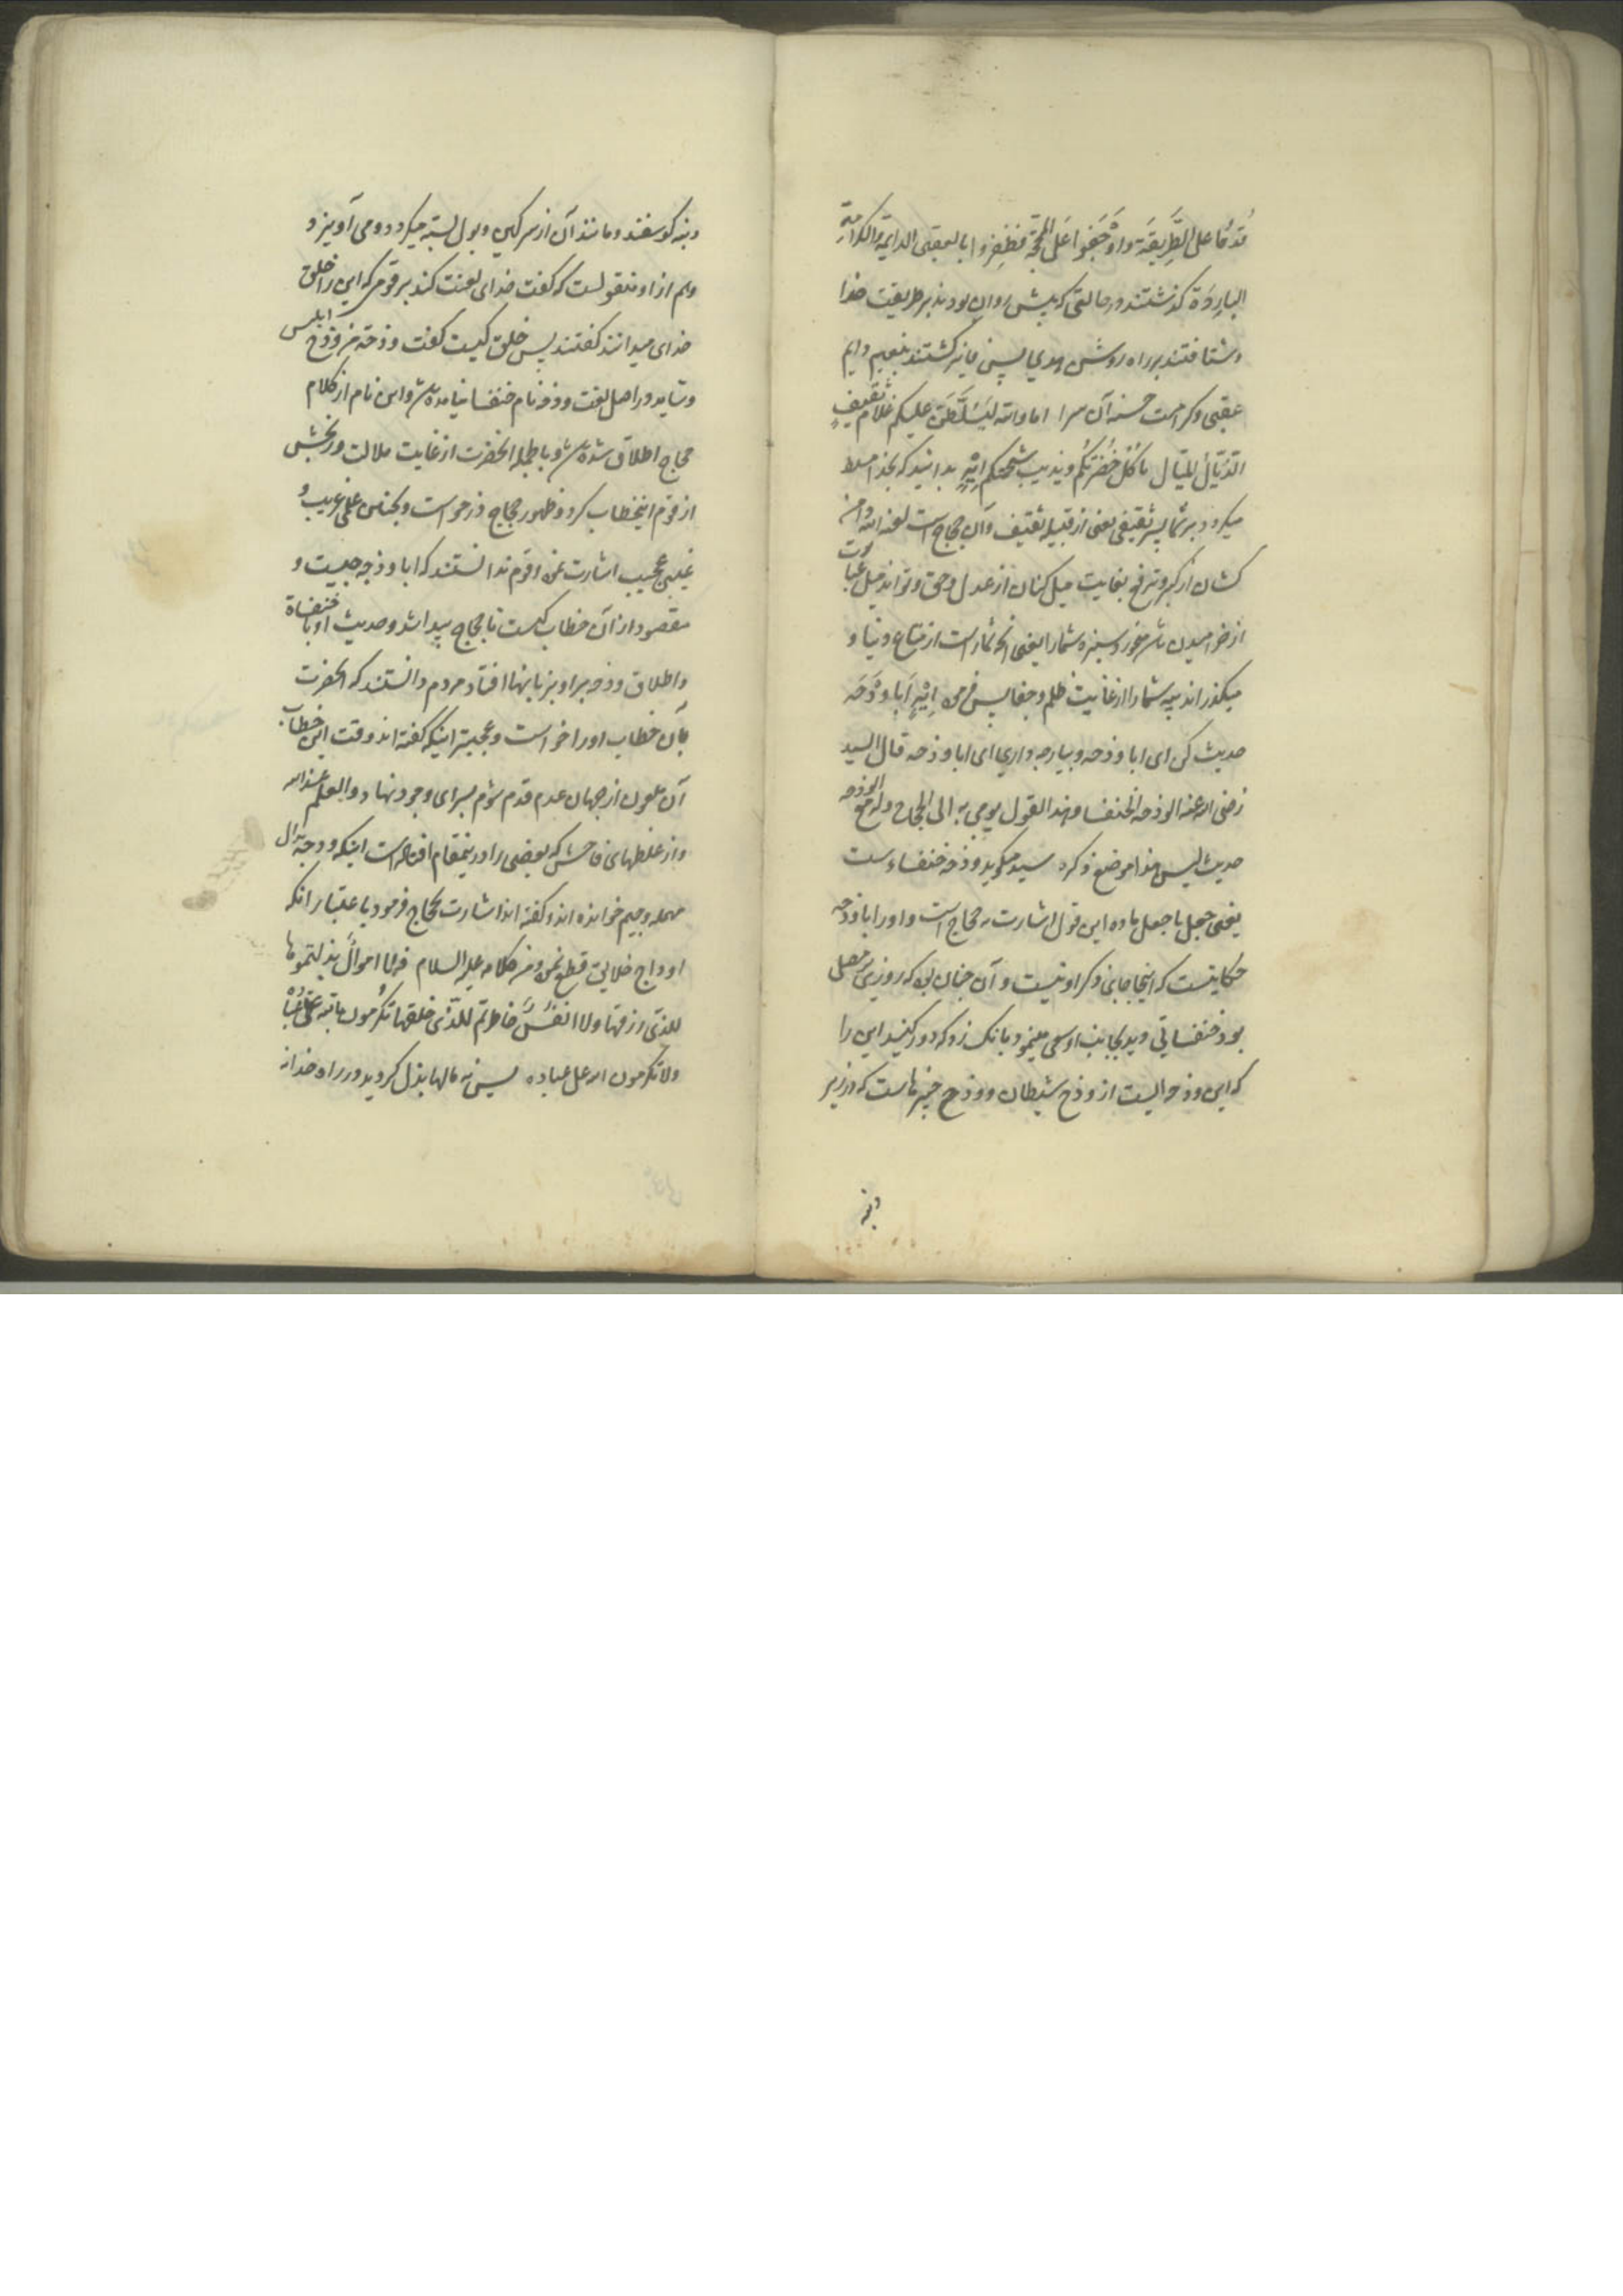 قُدُمًا على الطَّرِيقَة واَوْجَفُوا عَلَى المَحَجَّةِ فَظَفِرُوا بالعقبى الدایمة والکرامَةِ
البارِدَة کذشتند در حالتی که پیش روان بودند بر طریقت خدا
و شتافتند بر راه روشن هدی پس فایز کشتند بنعیم دایم
عقبی و کرامت حسنه آن سرا اما والله لَیُسَلَّطَنَّ علیکم غلامُ ثَقیفٍ
الذَّیّالُ المیّال یاکُلُ خُضْرَتَکُم ویذیب شَحْمَتَکُم اِیْهٍ بدانید که بخدا مسلط
میکردد بر شما پسر ثقیفی یعنی از قبیله ثقیف وآن حجاج است لعنه الله دامن
کشان از کبر و ترفع بغایت میل کنان از عدل و حق و تواند میل عبارت
از خرامیدن باشد میخورد سبزه شما را یعنی آنچه شما راست از متاع دنیا و
میکذراند پیه شما را از غایت ظلم و جفا پس فرمود اِیْهٍ اَبا وَذَحَه
حدیث کن ای ابا وذحه و بیار چه داری ای ابا وذحه قال السید
رضی الله عنه الوذحه الخنفسا وهذا القول یومی به الی الحجاج وله مع الوذحه
حدیث لیس هذا موضع ذکره سید میکوید وذحه خنفساءست
یعنی جعل یا جعل ماده این قول اشارت به حجاج است و او را با وذحه
حکایتیست که اینجا جای ذکر او نیست و آن چنان بود که روزی بر مصلی
بود خنفسائی دید بجانب او سعی مینمود بانک زد که دور کنید این را
که این وذحه ایست از وذح شیطان و وذح چیزهاست که در زیر
دنبه
دنبه کوسفند و مانند آن از سرکین و بول بسته میکردد و می آویزد
وهم از او منقولست که کفت خدای لعنت کند بر قومی که این را خلق
خدای میدانند کفتند پس خلق کیست کفت وذحة من وذح ابلیس
و شاید در اهل لغت وذحه نام خنفسا نیامده باشد و این نام از کلام
حجاج اطلاق شده باشد و بالجمله انحضرت از غایت ملالت و رنجش
از قوم اینخطاب کرد و ظهور حجاج در خواست و بجناس علمی غریب و
غیبی عجیب اشارت نمود و قوم ندانستند که ابا وذحه چیست و
مقصود از آن خطاب کیست تا حجاج پیدا شد و حدیث او با خنفساة
و اطلاق وذحه بر او بزبانها افتاد مردم دانستند که انحضرت
بآن خطاب او را خواست و عجیبتر اینکه کفته اند وقت این خطاب
آن ملعون از جهان عدم قدم شوم بسرای وجود نهاد والعلم عند الله
و از غلطهای فاحش که بعضی را در ینمقام افتاده است اینکه ودجه بدال
مهمله وجیم خوانده اند و کفته اند اشارت بحجاج فرمود باعتبار انکه
اوداج خلایق قطع نمود ومن کلامه علیه السلام فلا اموالَ بذلتموها
للذی رزقها ولا انفُسَ خاطرتم للذی خلقها تکرُمون بالله علی عِبادِهِ
ولا تکرمون الله علی عباده پس نه مالها بذل کردید در راه خدا نه